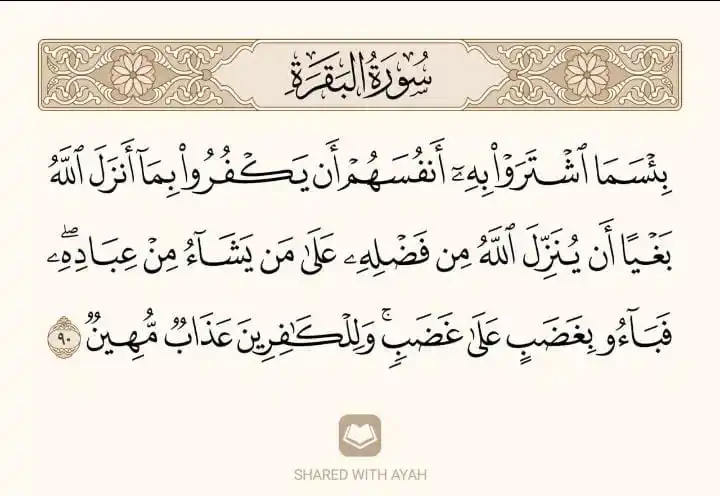 سُورَةُ البَقَرَةِ
بِئۡسَمَا ٱشۡتَرَوۡاْ بِهِۦٓ أَنفُسَهُمۡ أَن يَكۡفُرُواْ بِمَآ أَنزَلَ ٱللَّهُ
بَغۡيًا أَن يُنَزِّلَ ٱللَّهُ مِن فَضۡلِهِۦ عَلَىٰ مَن يَشَآءُ مِنۡ عِبَادِهِۦۖ
فَبَآءُو بِغَضَبٍ عَلَىٰ غَضَبٖۚ وَلِلۡكَٰفِرِينَ عَذَابٞ مُّهِينٞ ٩٠
SHARED WITH AYAH